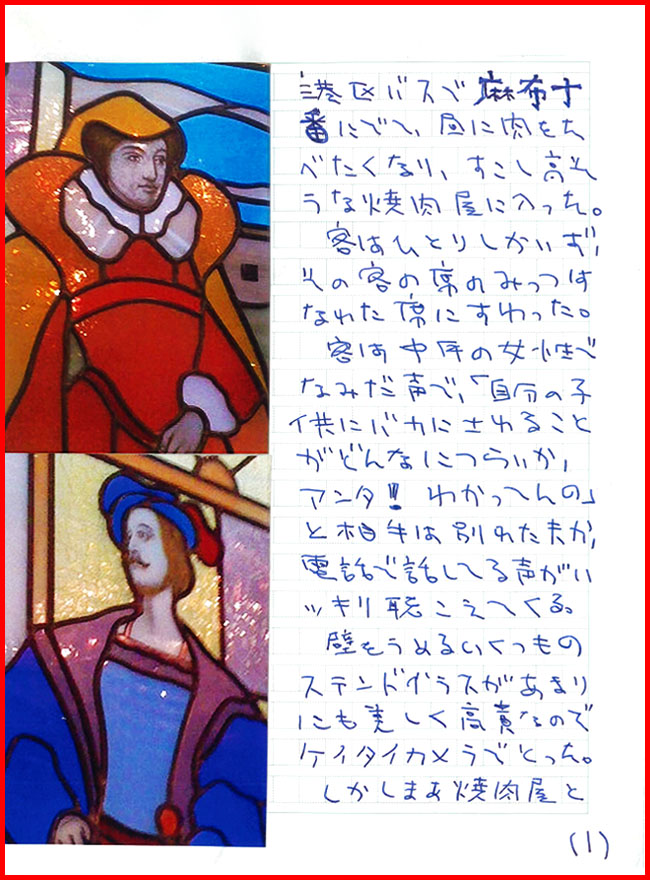 港区バスで麻布十
番にでて、昼に肉をた
べたくなり、すこし高そ
うな焼肉屋に入った。
客はひとりしかいず、
その客の席のみっつは
なれた席にすわった。
客は中年の女性で
なみだ声で、「自分の子
供にバカにされること
がどんなにつらいか、
アンタ!わかってんの」
と相手は別れた夫か、
電話で話してる声がハ
ッキリ聴こえてくる。
壁をうめるいくつもの
ステンドグラスがあまり
にも美しく高貴なので
ケイタイカメラでとった。
しかしまあ焼肉屋と
(1)